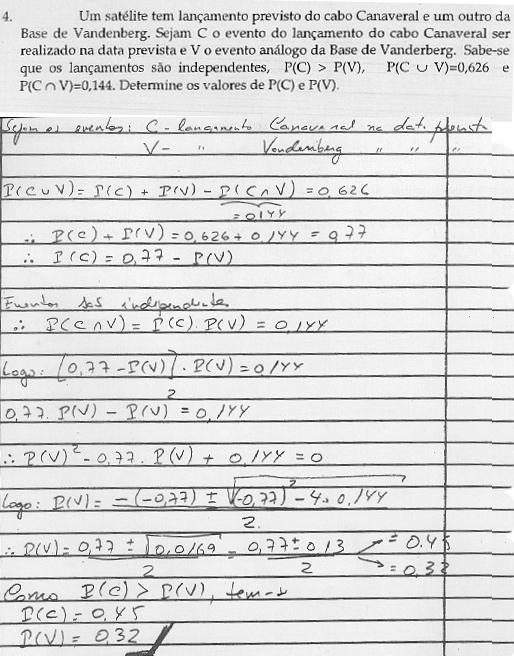 4. Um satélite tem lançamento previsto do cabo Canaveral e um outro da
Base de Vandenberg. Sejam C o evento do lançamento do cabo Canaveral ser
realizado na data prevista e V o evento análogo da Base de Vanderberg. Sabe-se
que os lançamentos são independentes, P(C) > P(V), P(C ∪ V)=0,626 e
P(C ∩ V)=0,144. Determine os valores de P(C) e P(V).
Sejam os eventos: C - lançamento Canaveral na data prevista
V- " Vandenberg " " "
P(C∪V) = P(C) + P(V) - P(C∩V) = 0,626
=0,144
∴ P(C) + P(V) = 0,626 + 0,144 = 0,77
∴ P(C) = 0,77 - P(V)
Eventos são independentes
∴ P(C∩V) = P(C). P(V) = 0,144
Logo: [0,77 - P(V)] . P(V) = 0,144
0,77. P(V) - P(V)² = 0,144
∴ P(V)² - 0,77. P(V) + 0,144 = 0
Logo: P(V) = -(-0,77) ± √(-0,77)² - 4. 0,144
2.
∴ P(V) = 0,77 ± √0,0169 = 0,77 ± 0,13 = 0.45
2 2 = 0,32
Como P(C) > P(V), tem-s
P(C) = 0,45
P(V) = 0,32